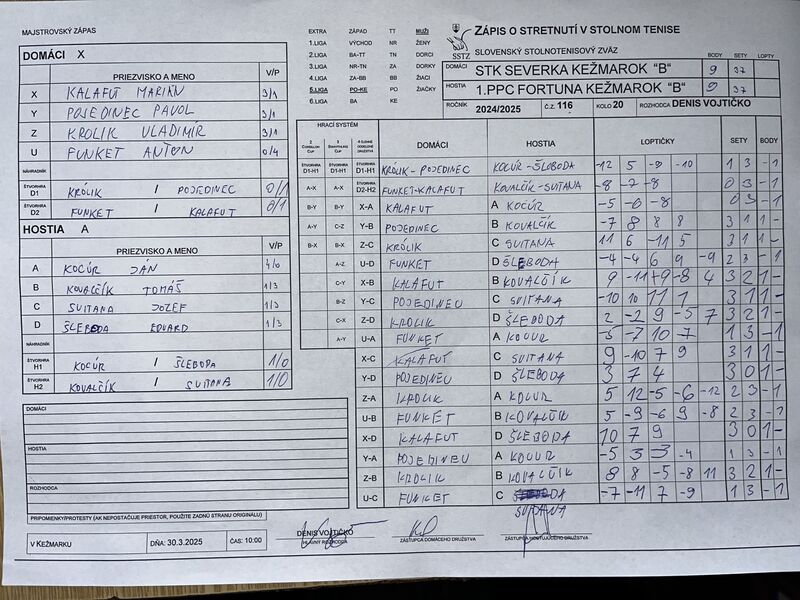 MAJSTROVSKÝ ZÁPAS
DOMÁCI X
PRIEZVISKO A MENO V/P
X KALAFUT MARIÁN 3/1
Y POJEDINEC PAVOL 3/1
Z KROLIK VLADIMÍR 3/1
U FUNKET ANTON 0/4
NÁHRADNÍK
ŠTVORHRA D1 KRÓLIK / POJEDINEC 0/1
ŠTVORHRA D2 FUNKET / KALAFUT 0/1
HOSTIA A
PRIEZVISKO A MENO V/P
A KOCÚR JÁN 4/0
B KOVALČÍK TOMÁŠ 1/3
C SUITANA JOZEF 1/3
D ŠLEBODA EDUARD 1/3
NÁHRADNÍK
ŠTVORHRA H1 KOCÚR / ŠLEBODA 1/0
ŠTVORHRA H2 KOVALČÍK / SUITANA 1/0
DOMÁCI
HOSTIA
ROZHODCA
PRIPOMIENKY/PROTESTY (AK NEPOSTAČUJE PRIESTOR, POUŽITE ZADNÚ STRANU ORIGINÁLU)
V KEŽMARKU DŇA: 30.3.2025 ČAS: 10:00
EXTRA ZÁPAD TT MUŽI
1.LIGA VÝCHOD NR ŽENY
2.LIGA BA-TT TN DORCI
3.LIGA NR-TN ZA DORKY
4.LIGA ZA-BB BB ŽIACI
5.LIGA PO-KE PO ŽIAČKY
6.LIGA BA KE
SSTZ
ZÁPIS O STRETNUTÍ V STOLNOM TENISE
SLOVENSKÝ STOLNOTENISOVÝ ZVÄZ
BODY SETY LOPTY
DOMÁCI STK SEVERKA KEŽMAROK "B" 9 37
HOSTIA 1.PPC FORTUNA KEŽMAROK "B" 9 37
ROČNÍK 2024/2025 Č.Z. 116 KOLO 20 ROZHODCA DENIS VOJTIČKO
HRACÍ SYSTÉM
DOMÁCI HOSTIA LOPTIČKY SETY BODY
ŠTVORHRA D1-H1 ŠTVORHRA D1-H1 ŠTVORHRA D1-H1 KRÓLIK-POJEDINEC KOCÚR-ŠLOBODA -12 5 -9 -10 1 3 - 1
A-X A-X ŠTVORHRA D2-H2 FUNKET-KALAFUT KOVALČIK-SUITANA -8 -7 -8 0 3 - 1
B-Y B-Y X-A KALAFUT A KOCÚR -5 -8 -8 0 3 - 1
A-Y C-Z Y-B POJEDINEC B KOVALČÍK -7 8 8 8 3 1 1 -
B-X B-X Z-C KRÓLIK C SUITANA 11 6 -11 5 3 1 1 -
A-Z U-D FUNKET D ŠLEBODA -4 -4 6 9 -9 2 3 - 1
C-Y X-B KALAFUT B KOVALČÍK 9 -11 +9 -8 4 3 2 1 -
B-Z Y-C POJEDINEU C SUITANA -10 10 11 7 3 1 1 -
C-X Z-D KROLIK D ŠLEBODA 2 -2 9 -5 7 3 2 1 -
A-Y U-A FUNKET A KOCUR -5 -7 10 7 1 3 - 1
X-C KALAFUT C SUITANA 9 -10 7 9 3 1 1 -
Y-D POJEDINEU D ŠLEBODA 3 7 4 3 0 1 -
Z-A KROLIK A KOCUR 5 12 -5 -6 -12 2 3 - 1
U-B FUNKET B KOVALČÍK 5 -9 -6 9 -8 2 3 - 1
X-D KALAFUT D ŠLEBODA 10 7 9 3 0 1 -
Y-A POJEDINEU A KOCUR -5 3 3 -4 1 3 - 1
Z-B KROLIK B KOVALČÍK 8 8 -5 -8 11 3 2 1 -
U-C FUNKET C -7 -11 7 -9 1 3 - 1
SUITANA
DENIS VOJTIČKO
HLAVNÝ ROZHODCA ZÁSTUPCA DOMÁCEHO DRUŽSTVA ZÁSTUPCA HOSŤUJÚCEHO DRUŽSTVA